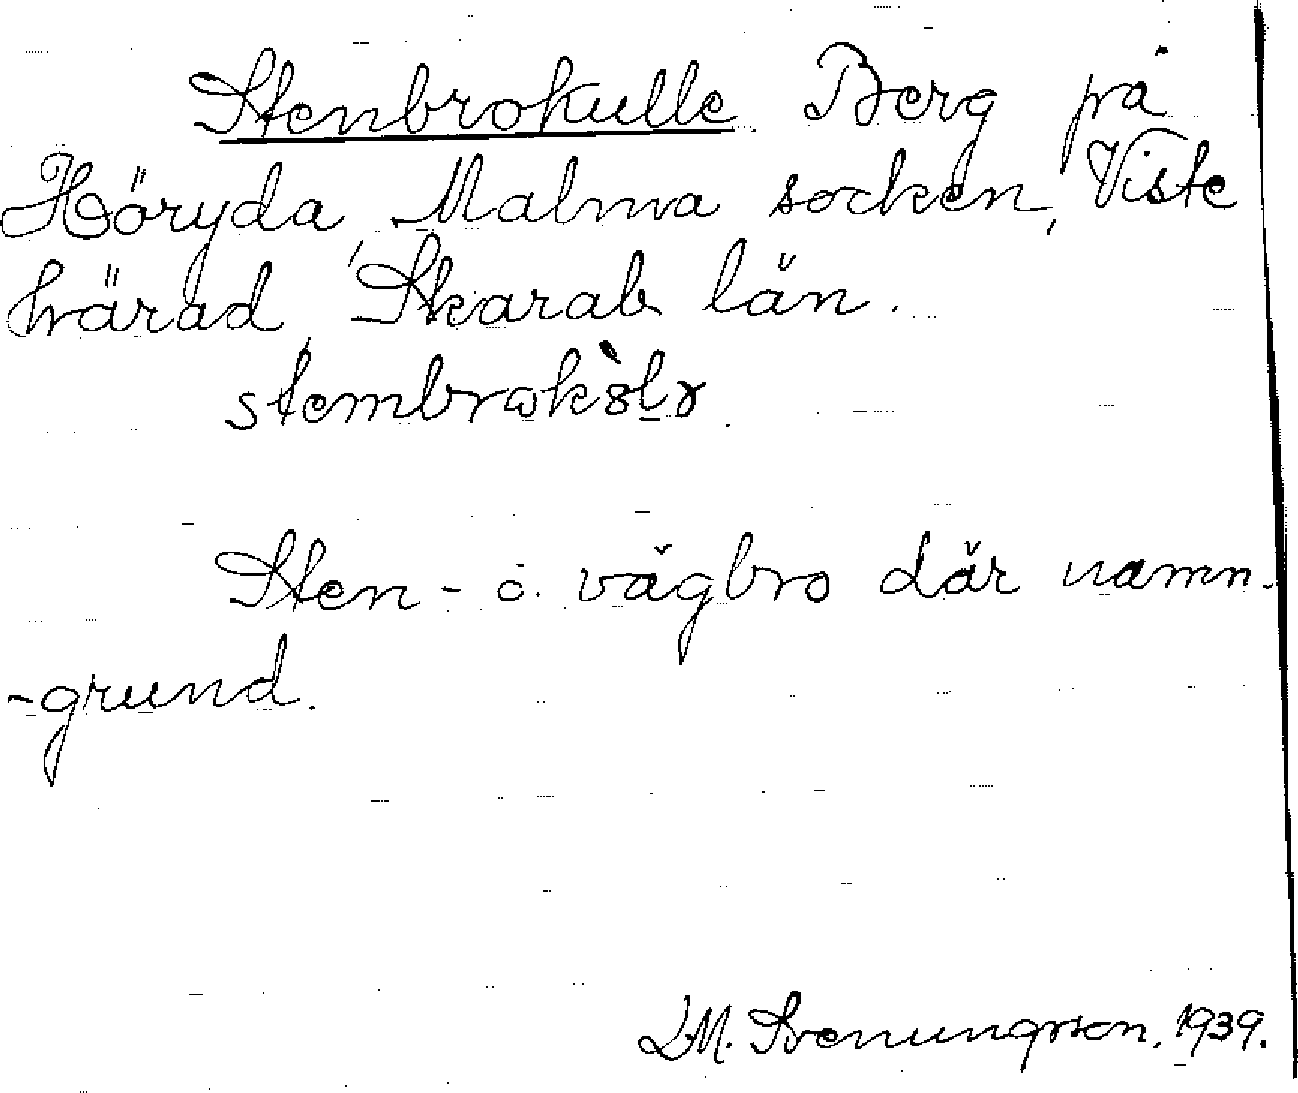 Stenbrokulle Berg på
Höryda, Malma socken, Viste
härad, Skarab län.
Sten- o. vägbro där namn-
-grund.
D.M. Svenungsson, 1939.